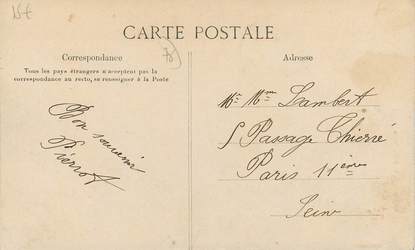 CARTE POSTALE
Correspondance
Tous les pays étrangers n'acceptent pas la
correspondance au recto, se renseigner à la Poste
Bon souvenir
Pierrot
Adresse
Mr Mme Lambert
5 Passage Thierré
Paris 11ème
Seine